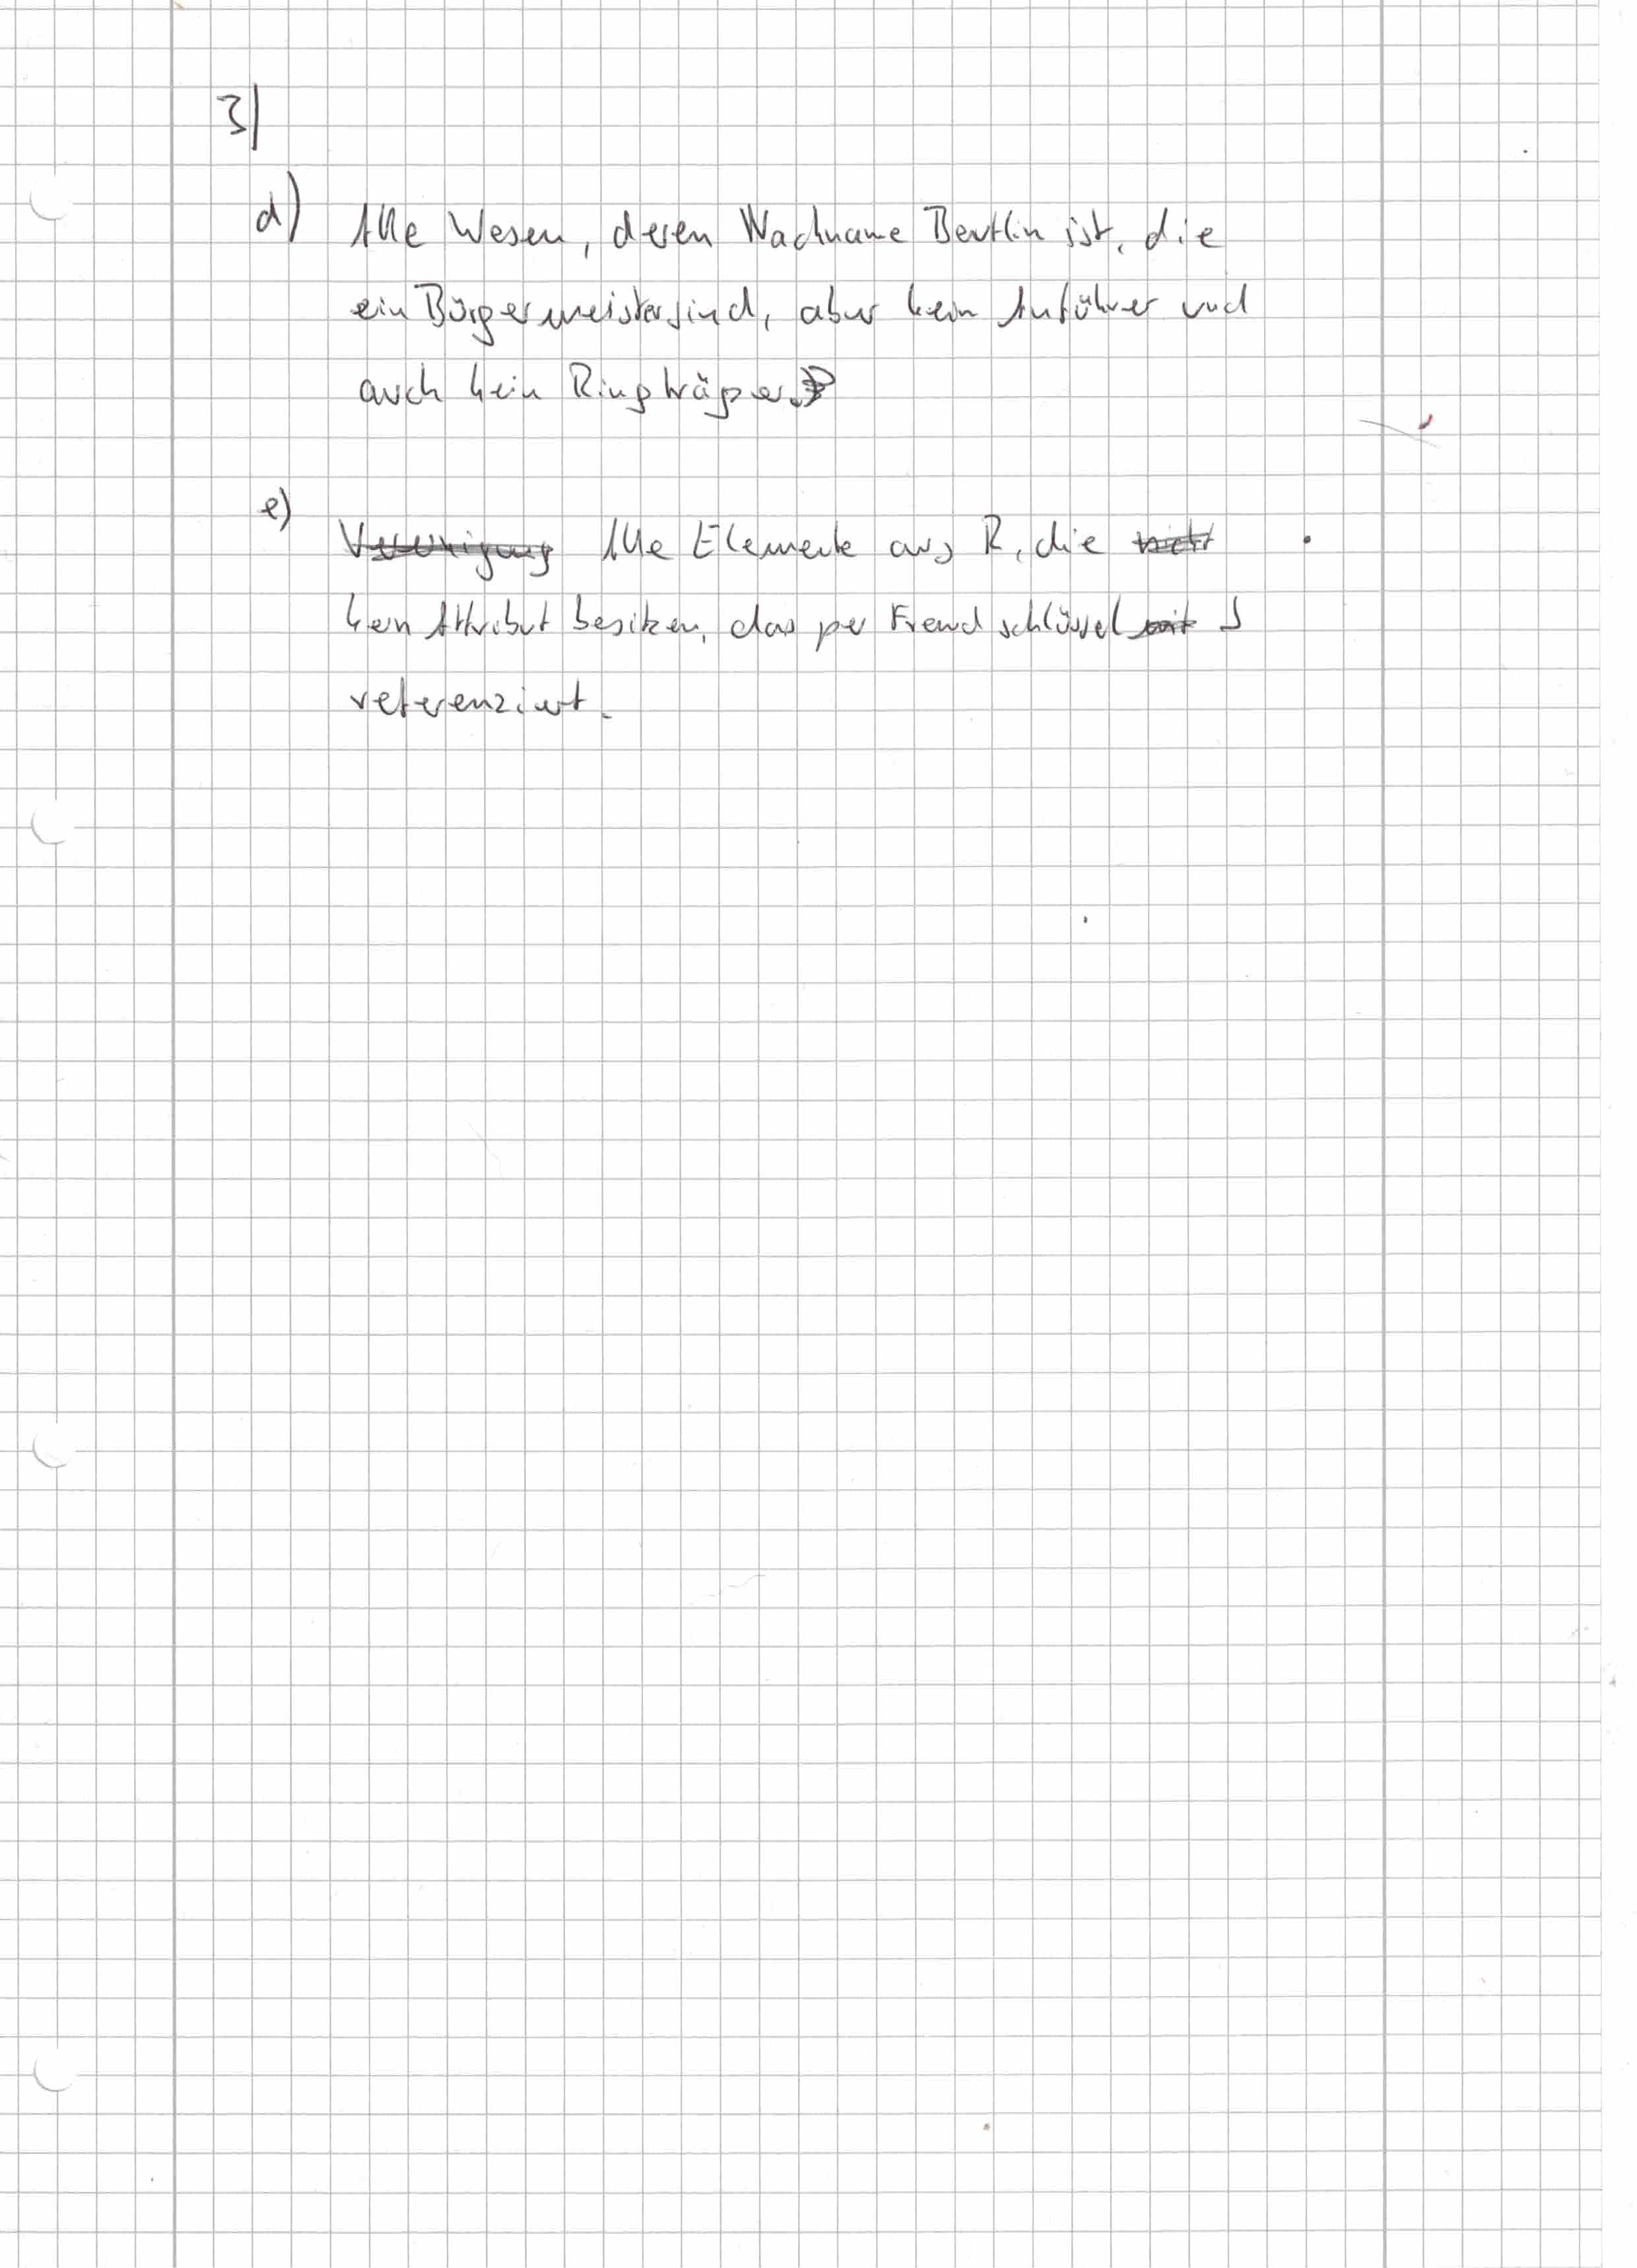 3)
d) Alle Wesen, deren Nachname Beutlin ist, die
ein Bürgermeister sind, aber kein Anführer und
auch kein Ringträger.
e) Vereinigung Alle Elemente aus R, die nicht
kein Attribut besitzen, das per Fremdschlüssel mit S
referenziert.